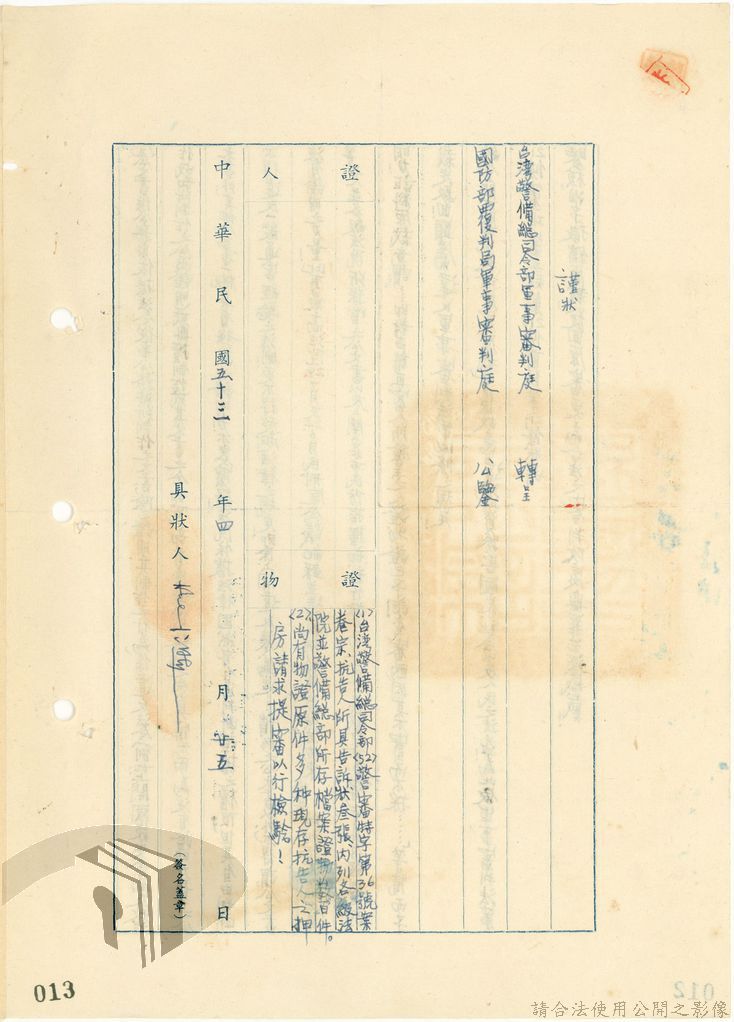 謹狀
台灣警備總司令部軍事審判庭 轉呈
國防部覆判局軍事審判庭 公鑒
證人
證物
(1)台灣警備總司令部(52)警審特字第36號案
卷宗、抗告人所具告訴狀叁張、內列各級法
院並警備總部所存檔案證物数百件。
(2)尚有物證原件多种現存抗告人之押
房請求提審以行檢驗!
中華民國五十三年四月廿五日
具狀人
(簽名蓋章)
013
012
請合法使用公開之影像